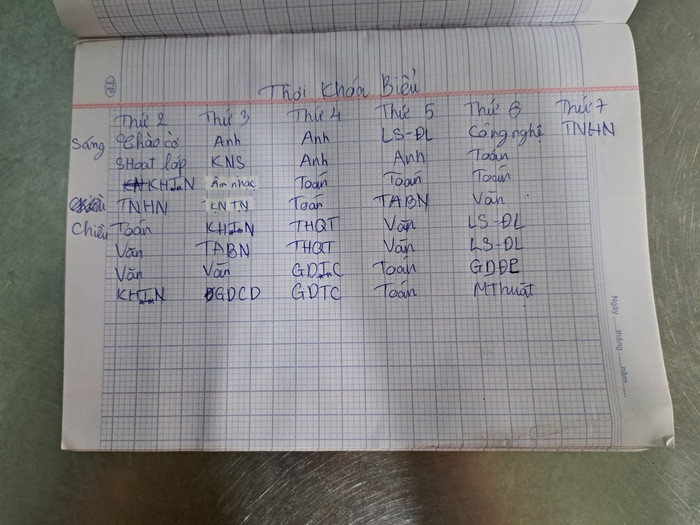 TP
Thời Khóa Biểu
Thứ 2 Thứ 3 Thứ 4 Thứ 5 Thứ 6 Thứ 7
Sáng Chào cờ Anh Anh LS-ĐL Công nghệ TNHN
SHoạt lớp KNS Anh Anh Toán
KHTN Âm nhạc Toán Toán Toán
TNHN KNTN Toán TABN Văn
Chiều Toán KHTN THQT Văn LS-ĐL
Văn TABN THQT Văn LS-ĐL
Văn Văn GDTC Toán GDĐP
KHTN GDCD GDTC Toán MThuật
Ngày ..... tháng ..... năm.....